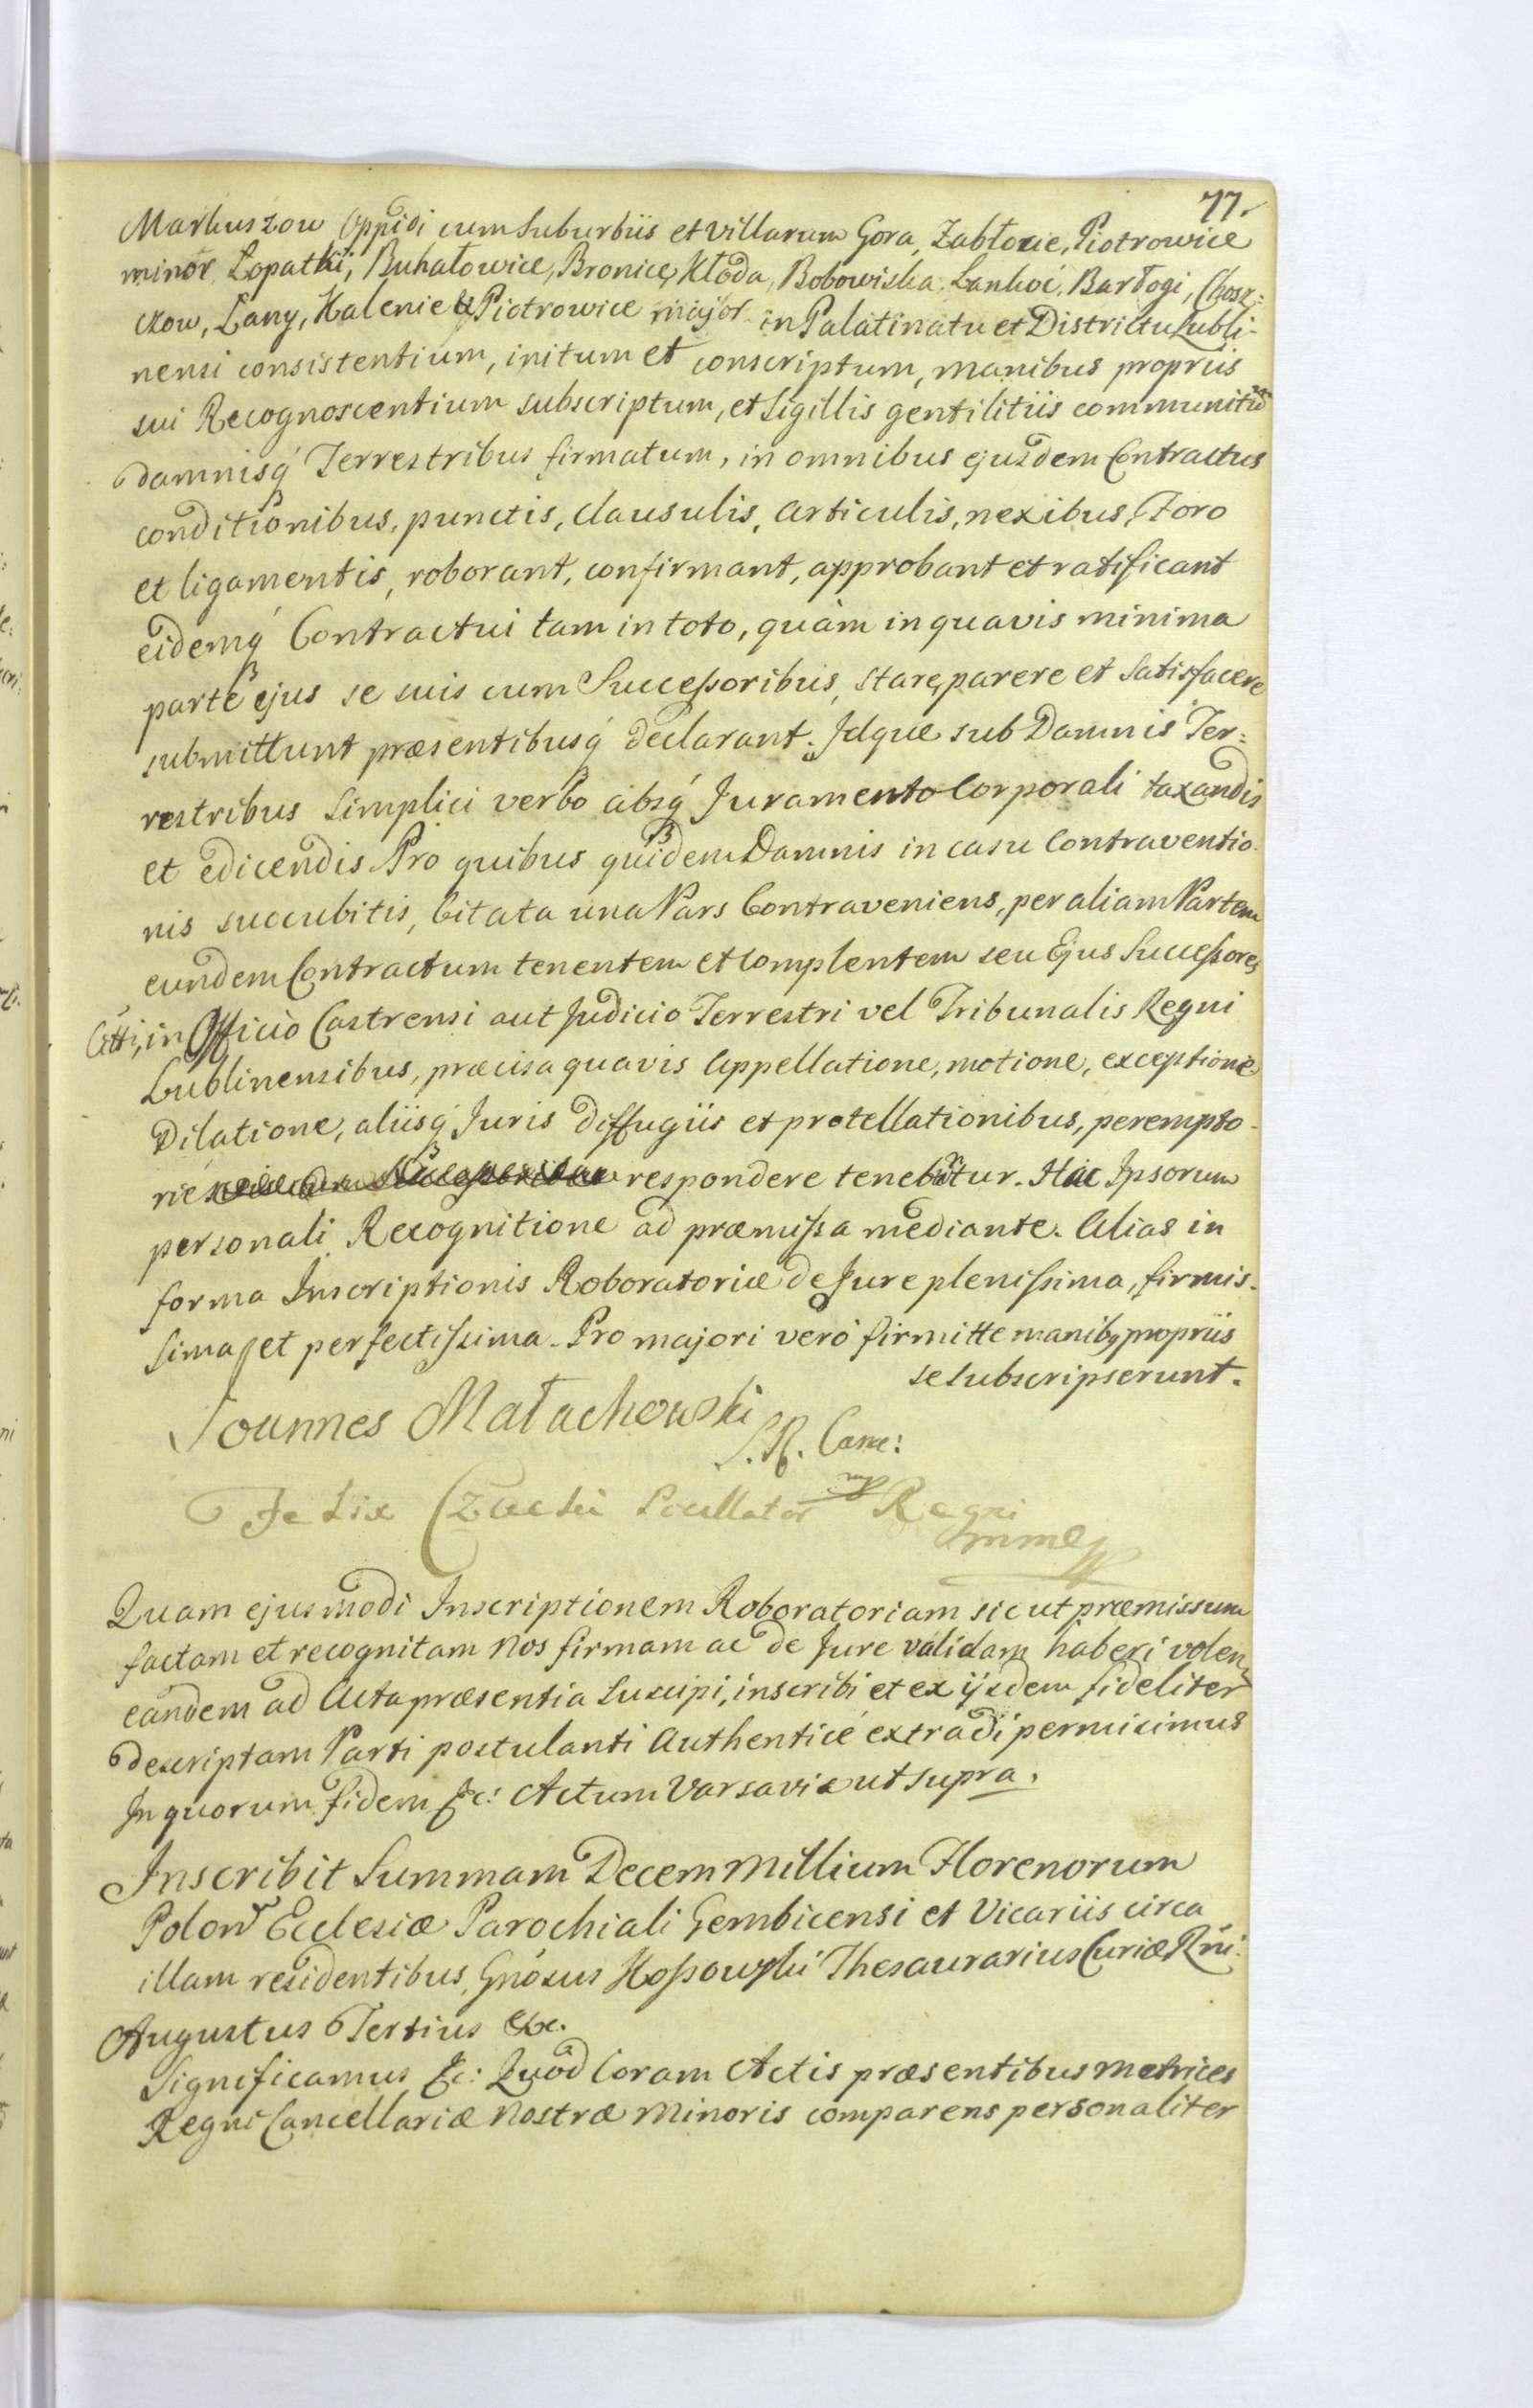 77.
Markuszow Oppidi cum Suburbiis et Villarum Gora, Zabłocie, Piotrowice
minor, Łopatki, Buhałowice, Bronice, Kłoda, Bobowiska, Łankoć, Barłogi, Chosz:
czow, Łany, Kalenie & Piotrowice major in Palatinatu et Districtu Lubli-
nensi consistentium, initum et conscriptum, manibus propriis
sui Recognoscentium subscriptum, et Sigillis gentilitiis communitũ
damnisq́ Terrestribus firmatum, in omnibus ejusdem Contractus
conditionibus, punctis, clausulis, articulis, nexibus, Foro
et ligamentis, roborant, confirmant, approbant et ratificant
eidemq́ Contractui tam in toto, quàm in quavis minima
parte ejus se suis cum Successoribus, stare, parere et satisfacere
submittunt præsentibusq́ declarant. Idque sub Damnis Ter:
restribus simplici verbo absq́ Juramento Corporali taxandis
et edicendis Pro quibus quidem Damnis in casu Contraventio-
nis succubitis, Citata una Pars Contraveniens, per aliam Partem
eundem Contractum tenentem et complentem seu Ejus Successores
Citti, in Officio Castrensi aut Judicio Terrestri vel Tribunalis Regni
Lublinensibus, præcisa quavis Appellatione, motione, exceptione
Dilatione, aliisq́ Juris diffugiis et protellationibus, perempto-
rie respondere tenebitur. Hac Ipsorum
personali Recognitione ad præmissa mediante. Alias in
forma Inscriptionis Roboratoriæ de Jure plenissima, firmis-
sima, et perfectissima. Pro majori verò firmitte manibq propriis
se subscripserunt.
Joannes Małachowski
S. R. Canc:
mp
Felix Czacki Pocillator Regni
mmp
Quam ejusmodi Inscriptionem Roboratoriam sic ut præmissum
factam et recognitam Nos firmam ac de Jure validam haberi volen
eandem ad Acta præsentia suscipi, inscribi et ex ijsdem fideliter
descriptam Parti postulanti Authenticè extradi permisimus
In quorum fidem &c: Actum Varsaviæ ut supra.
Inscribit Summam Decem Millium Florenorum
Polon Ecclesiæ Parochiali Gembicensi et Vicariis circa
illam residentibus, Gnosus Kossowski Thesaurarius Curiæ Rni:
Augustus Tertius &c.
Significamus &c: Quòd Coram Actis præsentibus Metrices
Regni Cancellariæ Nostræ Minoris comparens personaliter